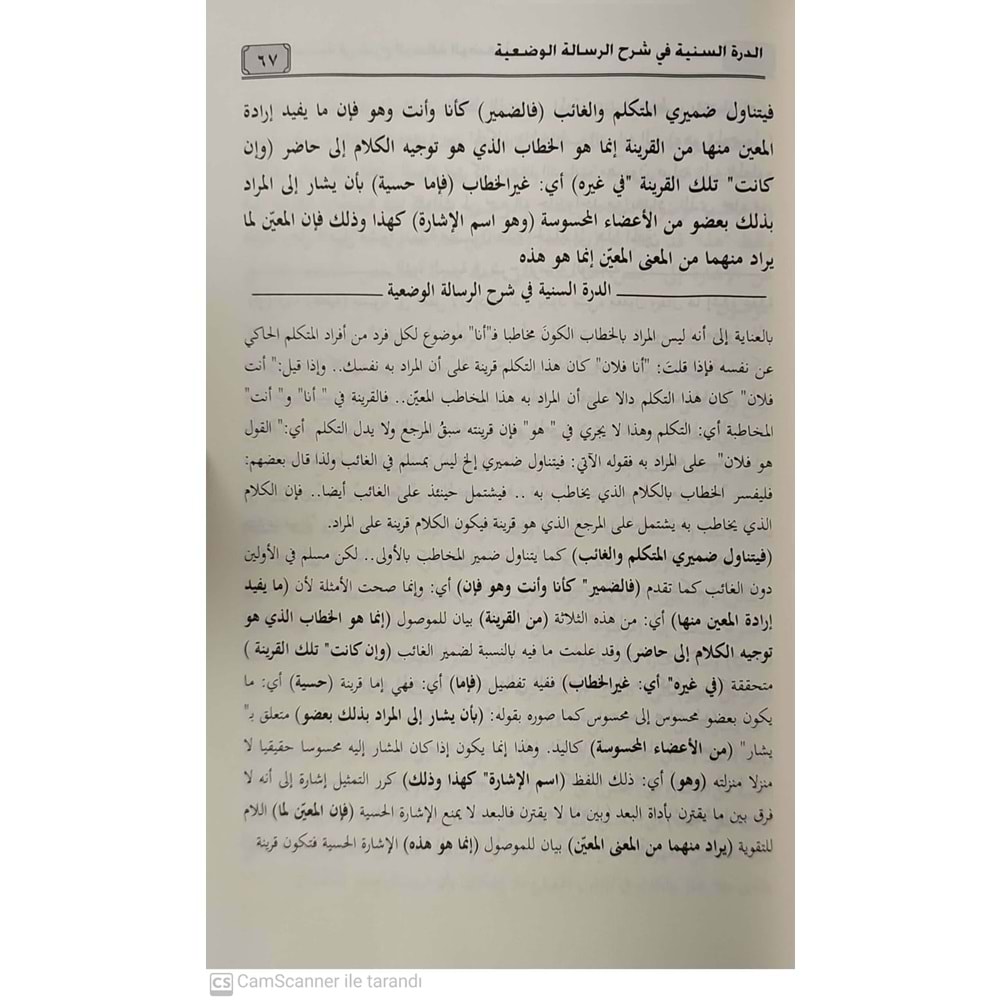 الدرة السنية في شرح الرسالة الوضعية
٦٧
فيتناول ضميري المتكلم والغائب (فالضمير) كأنا وأنت وهو فإن ما يفيد إرادة
المعين منها من القرينة إنما هو الخطاب الذي هو توجيه الكلام إلى حاضر (وإن
كانت" تلك القرينة "في غيره) أي: غيرالخطاب (فإما حسية) بأن يشار إلى المراد
بذلك بعضو من الأعضاء المحسوسة (وهو اسم الإشارة) كهذا وذلك فإن المعيّن لما
يراد منهما من المعنى المعيّن إنما هو هذه
الدرة السنية في شرح الرسالة الوضعية
بالعناية إلى أنه ليس المراد بالخطاب الكونَ مخاطبا فـ"أنا" موضوع لكل فرد من أفراد المتكلم الحاكي
عن نفسه فإذا قلتَ: "أنا فلان" كان هذا التكلم قرينة على أن المراد به نفسك.. وإذا قيل:" أنت
فلان" كان هذا التكلم دالا على أن المراد به هذا المخاطب المعيّن.. فالقرينة في " أنا" و" أنت"
المخاطبة أي: التكلم وهذا لا يجري في " هو" فإن قرينته سبقُ المرجع ولا يدل التكلم أي:" القول
هو فلان" على المراد به فقوله الآتي: فيتناول ضميري إلخ ليس بمسلم في الغائب ولذا قال بعضهم:
فليفسر الخطاب بالكلام الذي يخاطب به .. فيشتمل حينئذ على الغائب أيضا.. فإن الكلام
الذي يخاطب به يشتمل على المرجع الذي هو قرينة فيكون الكلام قرينة على المراد.
(فيتناول ضميري المتكلم والغائب) كما يتناول ضمير المخاطب بالأولى.. لكن مسلم في الأولين
دون الغائب كما تقدم (فالضمير" كأنا وأنت وهو فإن) أي: وإنما صحت الأمثلة لأن (ما يفيد
إرادة المعين منها) أي: من هذه الثلاثة (من القرينة) بيان للموصول (إنما هو الخطاب الذي هو
توجيه الكلام إلى حاضر) وقد علمت ما فيه بالنسبة لضمير الغائب (وإن كانت" تلك القرينة )
متحققة (في غيره" أي: غيرالخطاب) ففيه تفصيل (فإما) أي: فهي إما قرينة (حسية) أي: ما
يكون بعضو محسوس إلى محسوس كما صوره بقوله: (بأن يشار إلى المراد بذلك بعضو) متعلق بـ"
يشار" (من الأعضاء المحسوسة) كاليد. وهذا إنما يكون إذا كان المشار إليه محسوسا حقيقيا لا
منزلا منزلته (وهو) أي: ذلك اللفظ (اسم الإشارة" كهذا وذلك) كرر التمثيل إشارة إلى أنه لا
فرق بين ما يقترن بأداة البعد وبين ما لا يقترن فالبعد لا يمنع الإشارة الحسية (فإن المعيّن لما) اللام
للتقوية (يراد منهما من المعنى المعيّن) بيان للموصول (إنما هو هذه) الإشارة الحسية فتكون قرينة
CS CamScanner ile tarandı